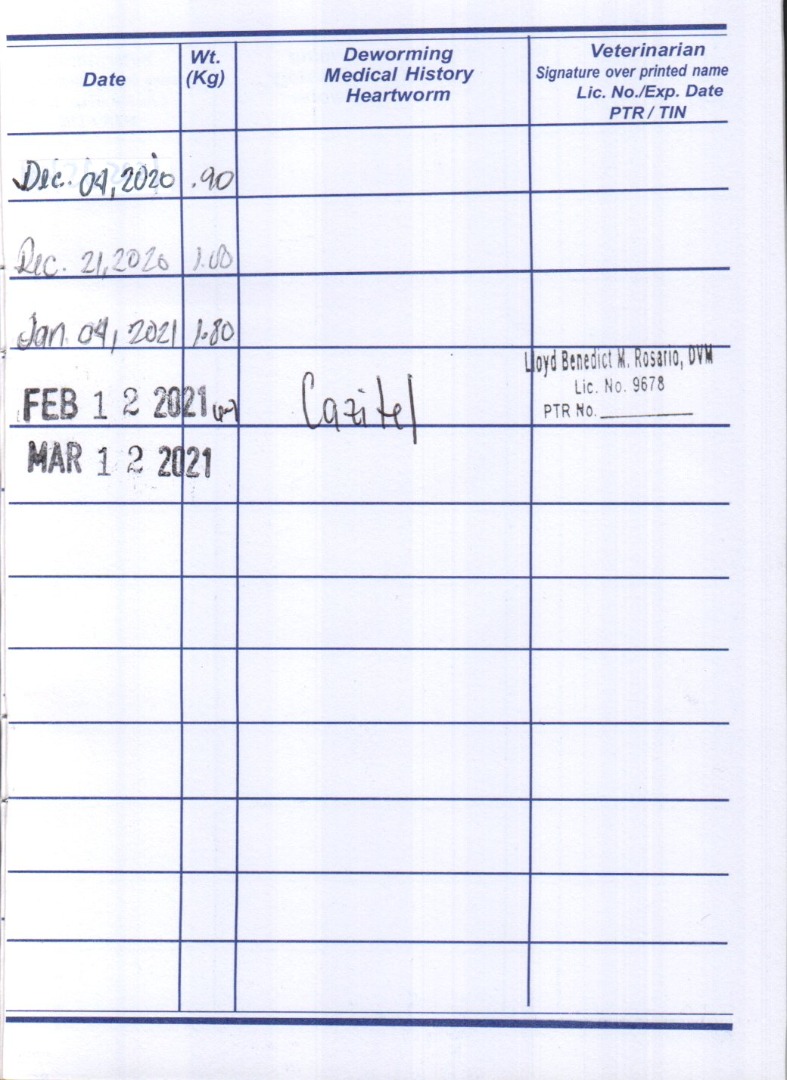 Date
Wt.
(Kg)
Deworming
Medical History
Heartworm
Veterinarian
Signature over printed name
Lic. No./Exp. Date
PTR / TIN
Dec. 04, 2020 .90
Dec. 21, 2020 1.00
Jan. 04, 2021 1.80
FEB 12 2021 Cazitel
Lloyd Benedict M. Rosario, DVM
Lic. No. 9678
PTR No.
MAR 12 2021